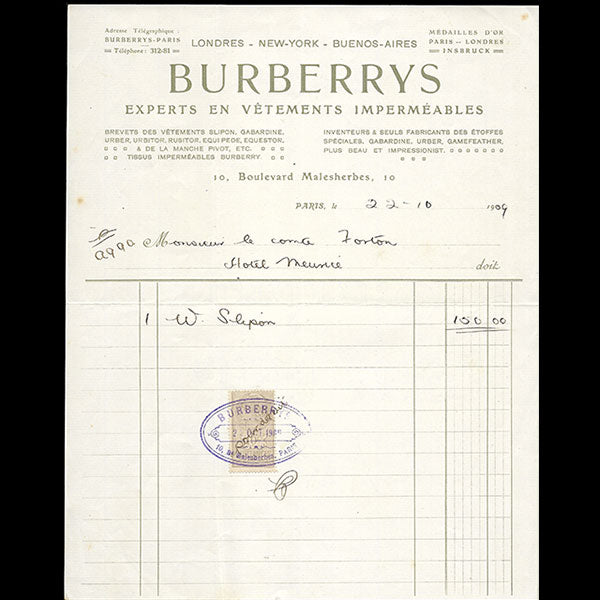 Adresse Télégraphique:
BURBERRYS-PARIS
Téléphone: 312-81
LONDRES - NEW-YORK - BUENOS-AIRES
MÉDAILLES D'OR
PARIS -- LONDRES
INSBRUCK
BURBERRYS
EXPERTS EN VÊTEMENTS IMPERMÉABLES
BREVETS DES VÊTEMENTS SLIPON, GABARDINE,
URBER, URBITOR, RUSITOR, EQUIPEDE, EQUESTON,
& DE LA MANCHE PIVOT, ETC.
TISSUS IMPERMÉABLES BURBERRY.
INVENTEURS & SEULS FABRICANTS DES ÉTOFFES
SPÉCIALES, GABARDINE, URBER, GAMEFEATHER,
PLUS BEAU ET IMPRESSIONIST.
10, Boulevard Malesherbes, 10
PARIS, le 22-10 1909
Monsieur le comte Forton
Hotel Meurice
doit
1 W. Slipon 150 00
BURBERRYS
10, Bd Malesherbes, PARIS